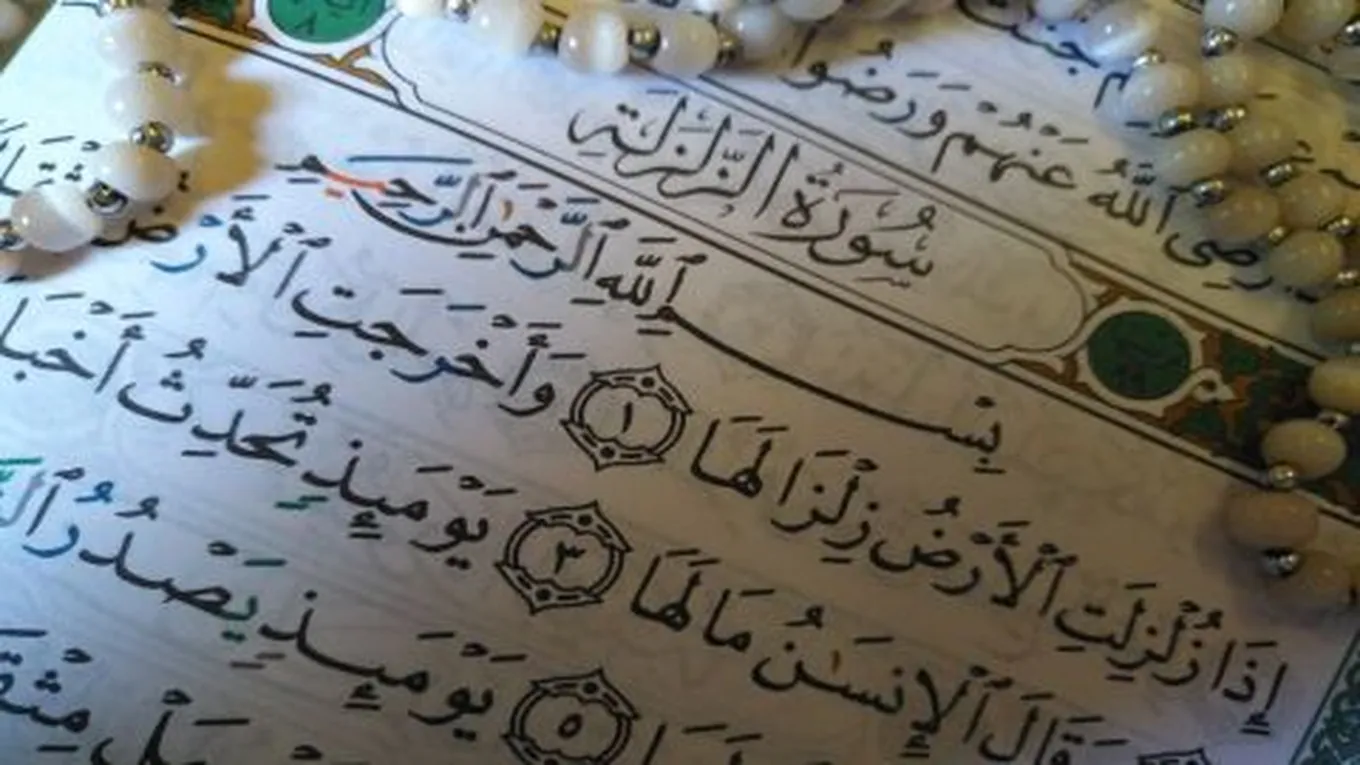 رَضِىَ ٱللَّهُ عَنْهُمْ وَرَضُوا
سُورَةُ الزَّلْزَلَةِ
بِسْمِ ٱللَّهِ ٱلرَّحْمَٰنِ ٱلرَّحِيمِ
إِذَا زُلْزِلَتِ ٱلْأَرْضُ زِلْزَالَهَا ١ وَأَخْرَجَتِ ٱلْأَرْضُ
وَقَالَ ٱلْإِنسَٰنُ مَا لَهَا ٣ يَوْمَئِذٍ تُحَدِّثُ أَخْبَا
٥ يَوْمَئِذٍ يَصْدُرُ